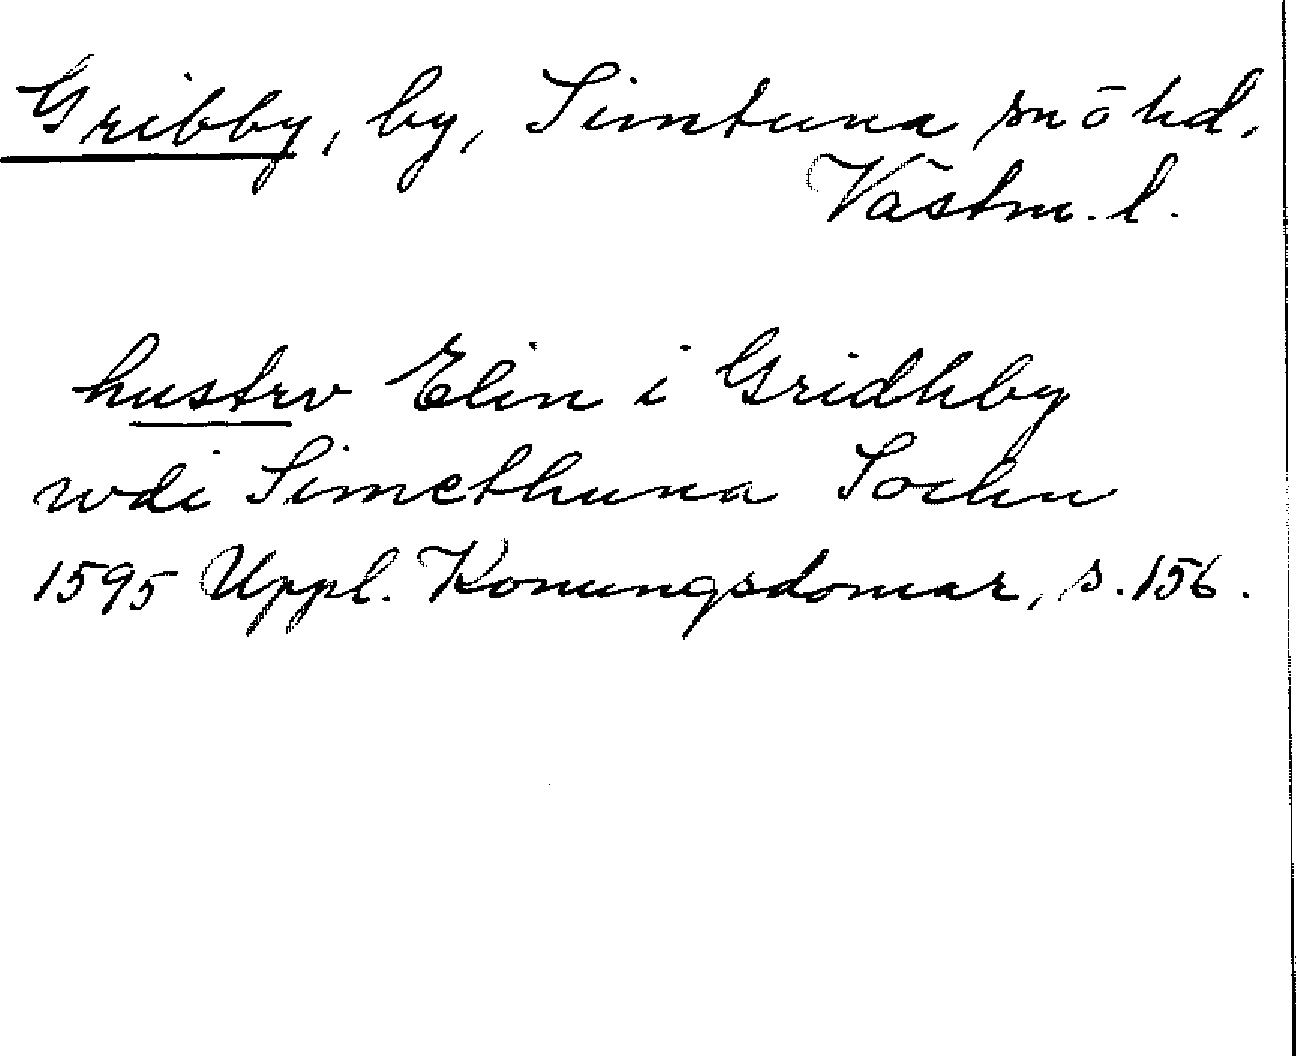 Gribby, by, Simtuna sn ō hd,
Västm. l.
hustrv Elin i Gridhby
wdi Simethuna Sochn
1595 Uppl. Konungsdomar, s. 156.